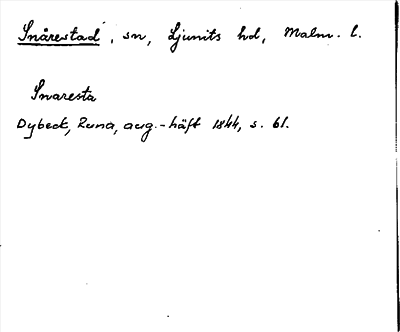 Snårestad, sn, Ljunits hd, Malm. l.
Snaresta
Dybeck, Runa, aug.-häft 1844, s. 61.